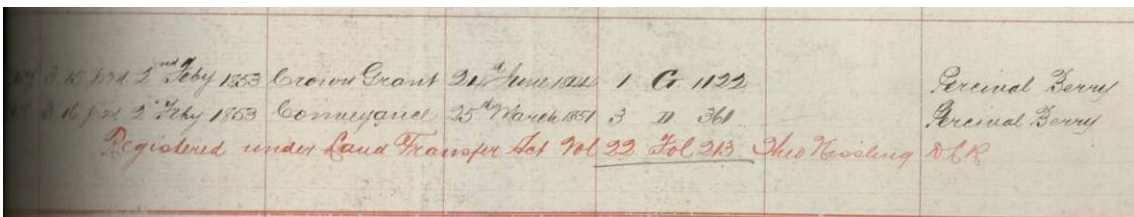 3.15 p.m. 2nd Feby 1853 Crown Grant 24th June 1844 1 G 1122 Percival Berry
3.16 p.m. 2d Feby 1853 Conveyance 25th March 1851 3 D 361 Percival Berry
Registered under Land Transfer Act Vol 22 Fol 213 Theo Kissling DLR